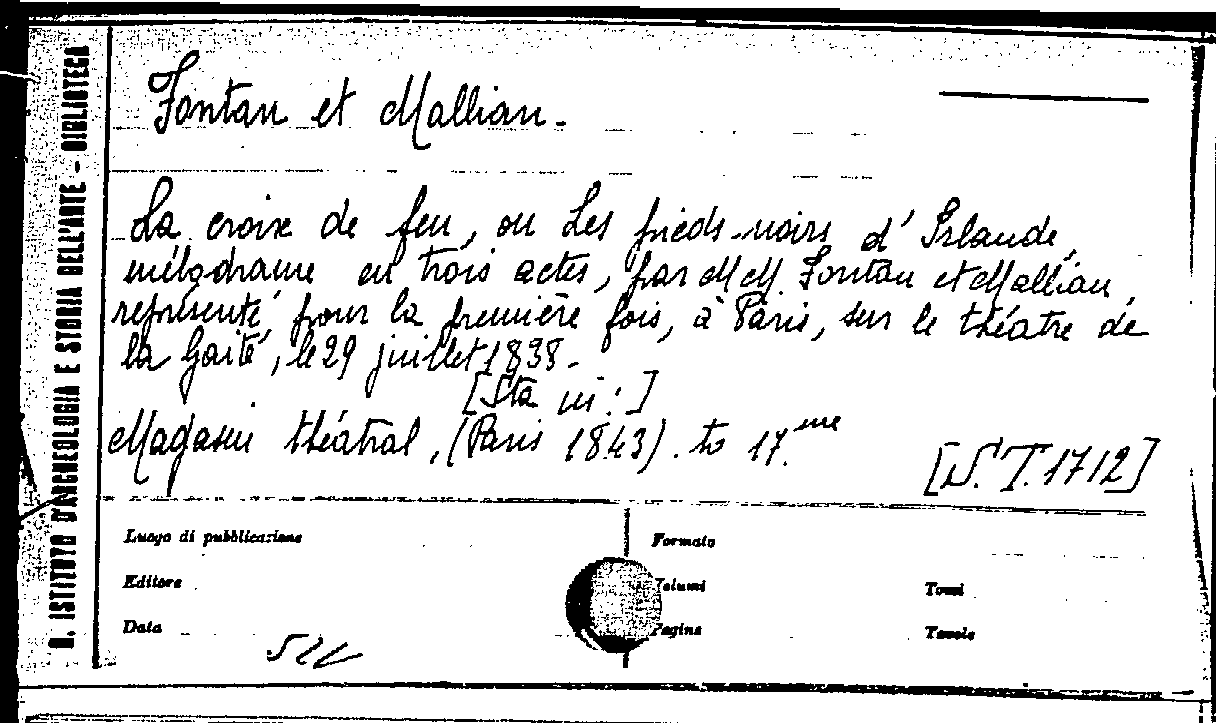 R. ISTITUTO D'ARCHEOLOGIA E STORIA DELL'ARTE - BIBLIOTECA
Fontan et Mallian.
La croix de feu, ou Les pieds-noirs d'Irlande,
mélodrame en trois actes, par MM. Fontan et Mallian,
représenté pour la première fois, à Paris, sur le théatre de
la Gaité, le 29 juillet 1838.
[Sta in:]
Magasin théatral, (Paris 1843). to 17.me
[S. T. 1712]
Luogo di pubblicazione
Formato
Editore
Volumi
Tomi
Data
Pagine
Tavole